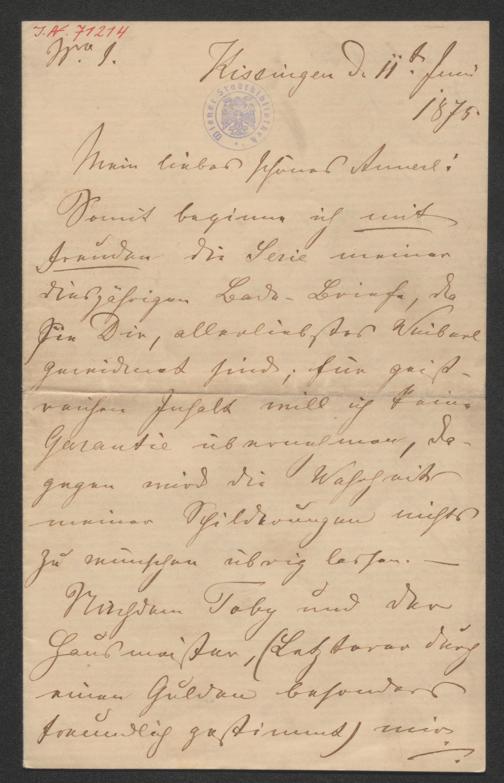 J.N. 71214
Nro 1.
Kissingen d. 11t Juni
1875.
Wiener Stadtbibliothek
Mein liebes schönes Annerl!
Somit beginne ich mit
Freuden die Serie meiner
diesjährigen Bade-Briefe, die
für Dir, allerliebstes Weiberl
gewidmet sind; für geist-
reichen Inhalt will ich keine
Garantie übernehmen, da-
gegen wird die Wahrheit
meiner Schilderungen nichts
zu wünschen übrig lassen. —
Nachdem Toby und der
Hausmeister, (Letzterer durch
einen Gulden besonders
freundlich gestimmt) mir